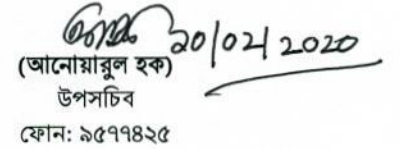 ২০/০২/২০২০
(আনোয়ারুল হক)
উপসচিব
ফোন: ৯৫৭৭৪২৫